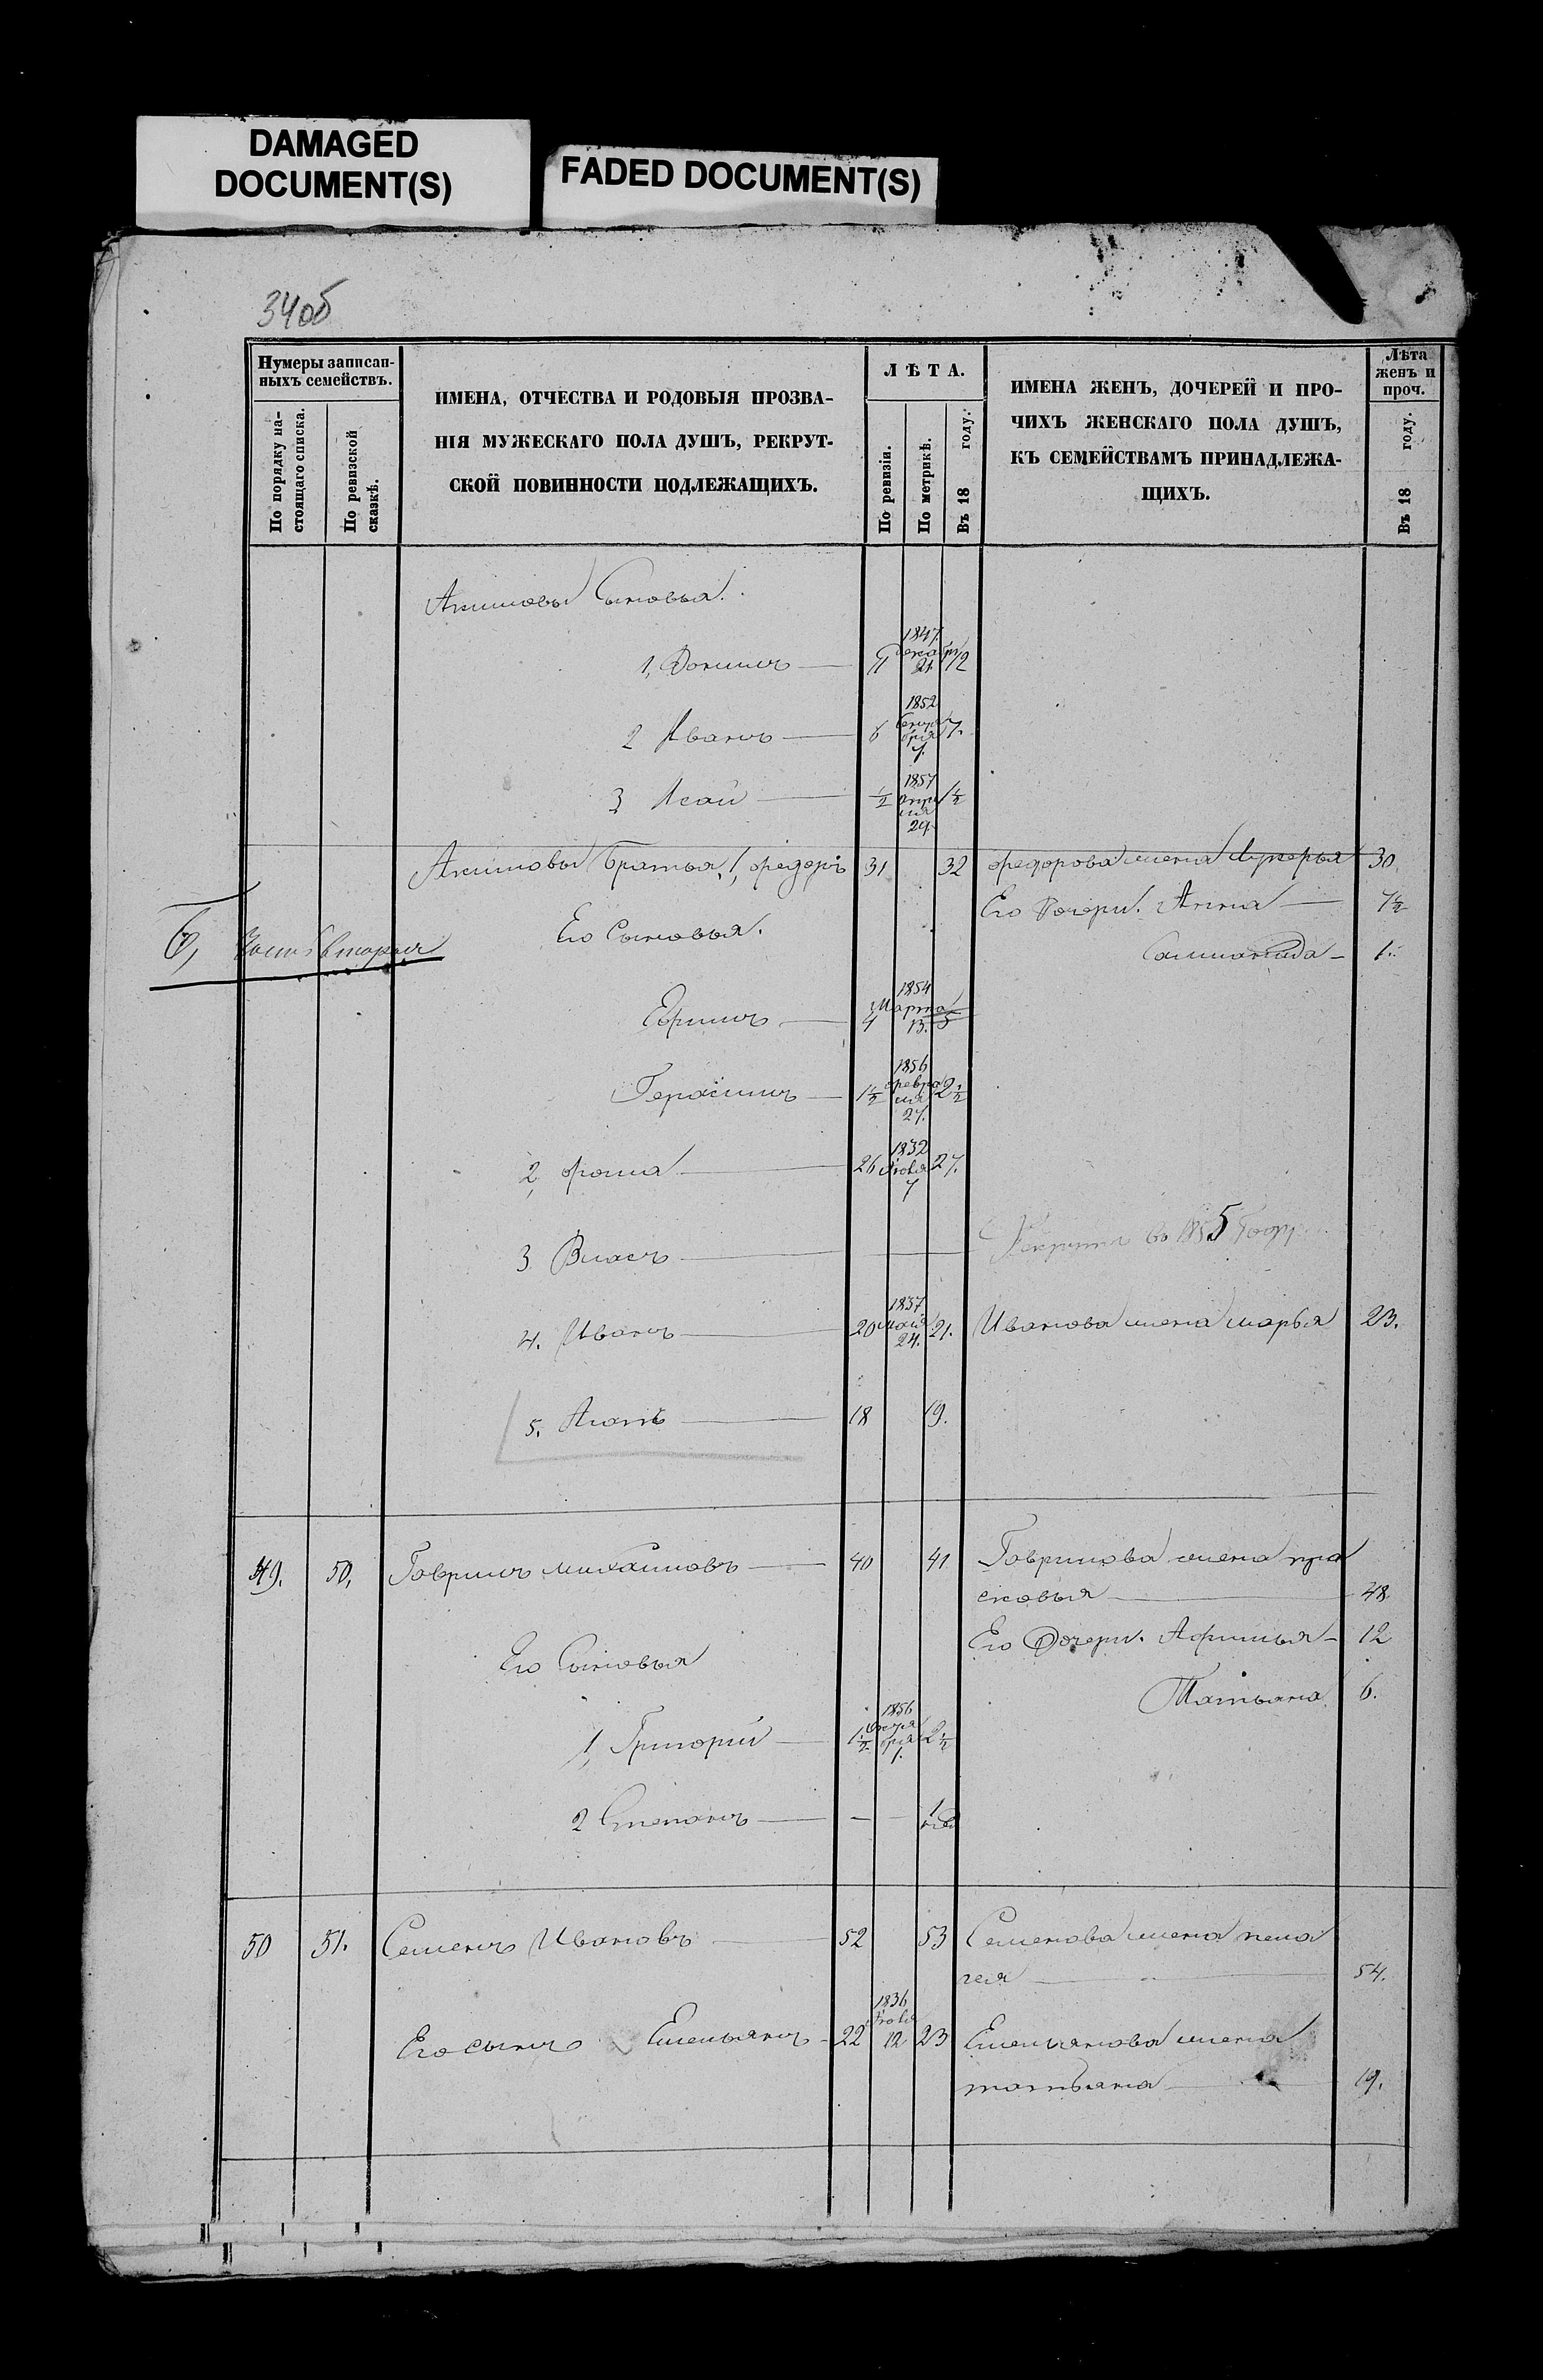 DAMAGED
DOCUMENT(S)
FADED DOCUMENT(S)
34об
Нумеры записан-
ныхъ семействъ.
По порядку на-
стоящаго списка.
По ревизской
сказкѣ.
ИМЕНА, ОТЧЕСТВА И РОДОВЫЯ ПРОЗВА-
НІЯ МУЖЕСКАГО ПОЛА ДУШЪ, РЕКРУТ-
СКОЙ ПОВИННОСТИ ПОДЛЕЖАЩИХЪ.
ЛѢТА.
По ревизіи.
По метрикѣ.
Въ 18 году.
ИМЕНА ЖЕНЪ, ДОЧЕРЕЙ И ПРО-
ЧИХЪ ЖЕНСКАГО ПОЛА ДУШЪ,
КЪ СЕМЕЙСТВАМЪ ПРИНАДЛЕЖА-
ЩИХЪ.
Лѣта
женъ и
проч.
Въ 18 году.
Акимовы Сыновья.
1847
1, 21
1852
2 Иванъ 6 7.
1857
3 Исай 1/2 апре 1 1/2
ля
29.
Акимовы братья, 1, Федоръ 31 32 Федорова жена Лукерья 30.
Его дочери. Анна 7 1/2
Его Сыновья.
6, Часть вторая
1.
1854
Марта
Ефимъ 4 13. 5
1856
Февра
Герасимъ 1 1/2 ля 2 1/2
27.
1832
2, Фома 26 Июля 27.
7
3 Власъ въ 1855 Году
1837
4. Иванъ 20 мая 21. Иванова жена марья 23.
24.
5. Агапъ 18 19.
49. 50. Гаврилъ михаиловъ 40 41 Гаврилова жена пра
сковья 48
Его Дочери. Афимья 12
Его Сыновья
Татьяна 6.
1856
1, Григорий 1 1/2 2 1/2
1.
2 Степанъ 1 нед
50 51. Семенъ Ивановъ 52 53 Семенова жена пела
гея 54.
1836
Июля
Его сынъ Емельянъ 22 12 23 Емельянова жена
татьяна 19.